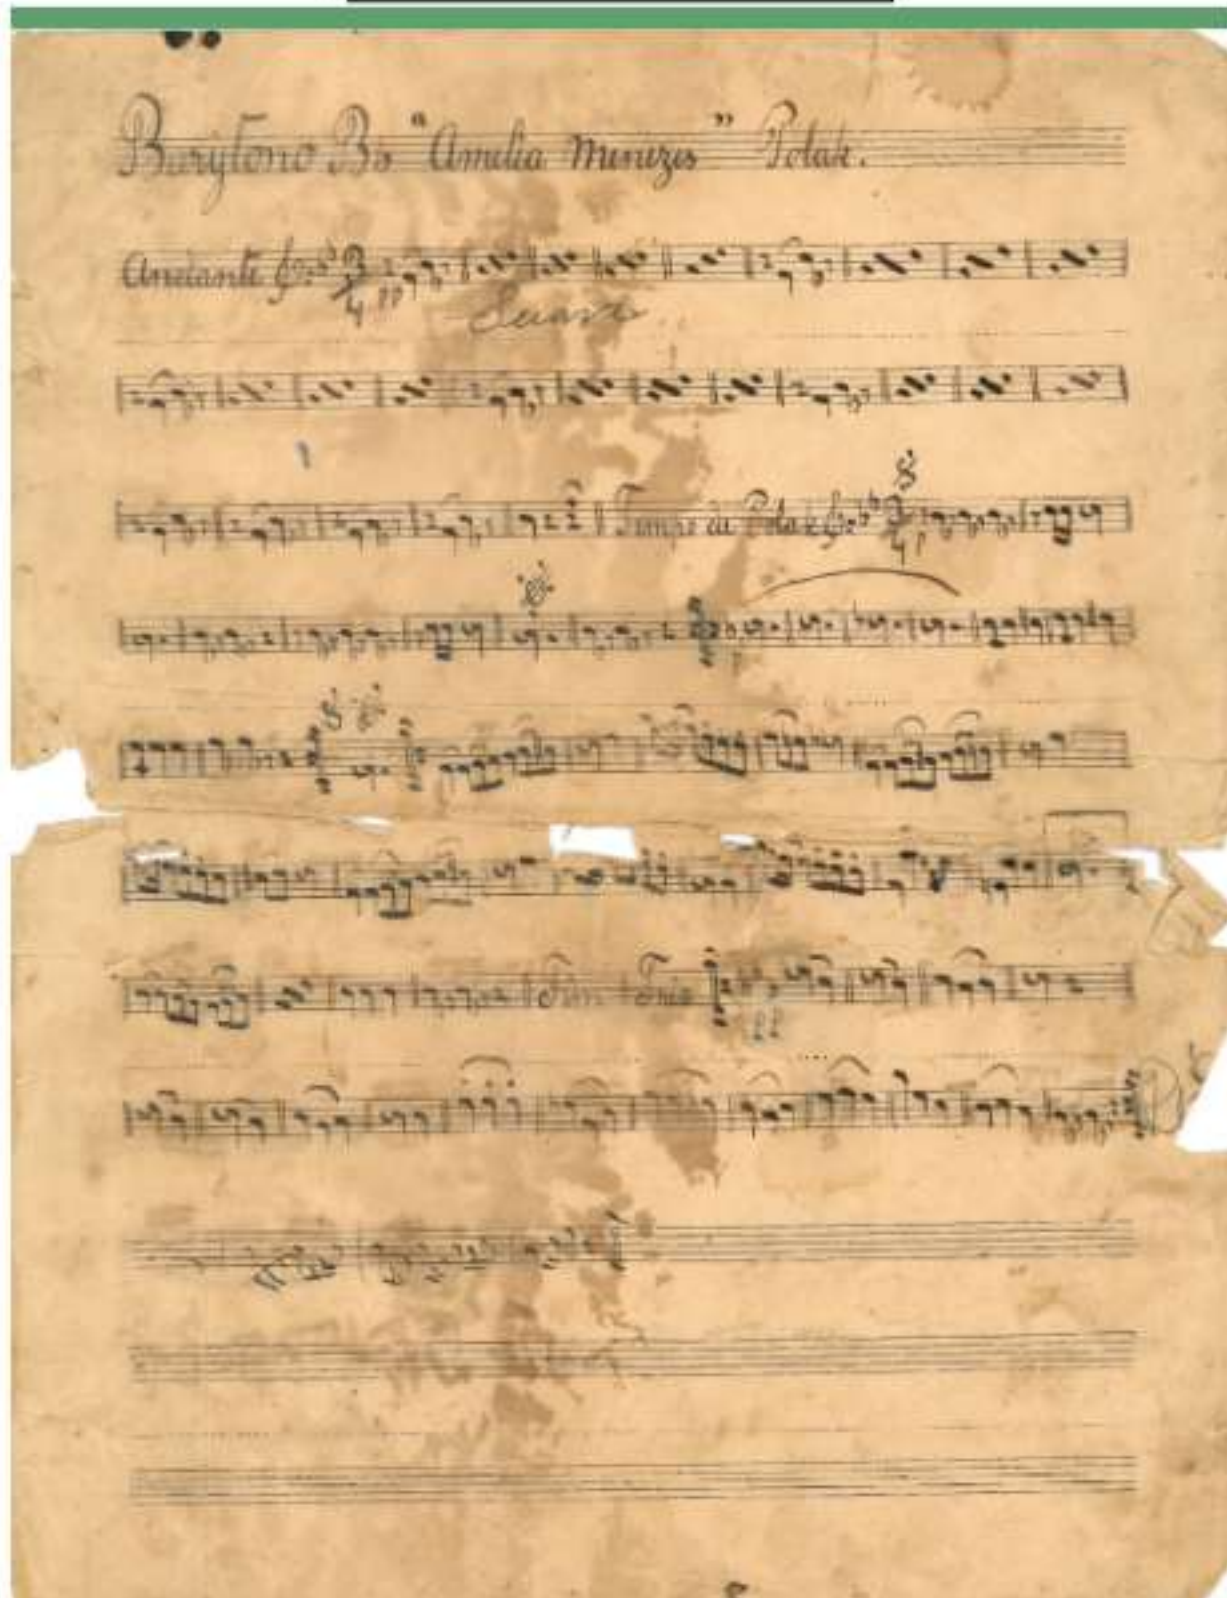 Barytono Bb "Amelia Menizes" Polak.
Andante 3/4 pp
Tempo de Polak 3/4 p
Fim Trio
pp